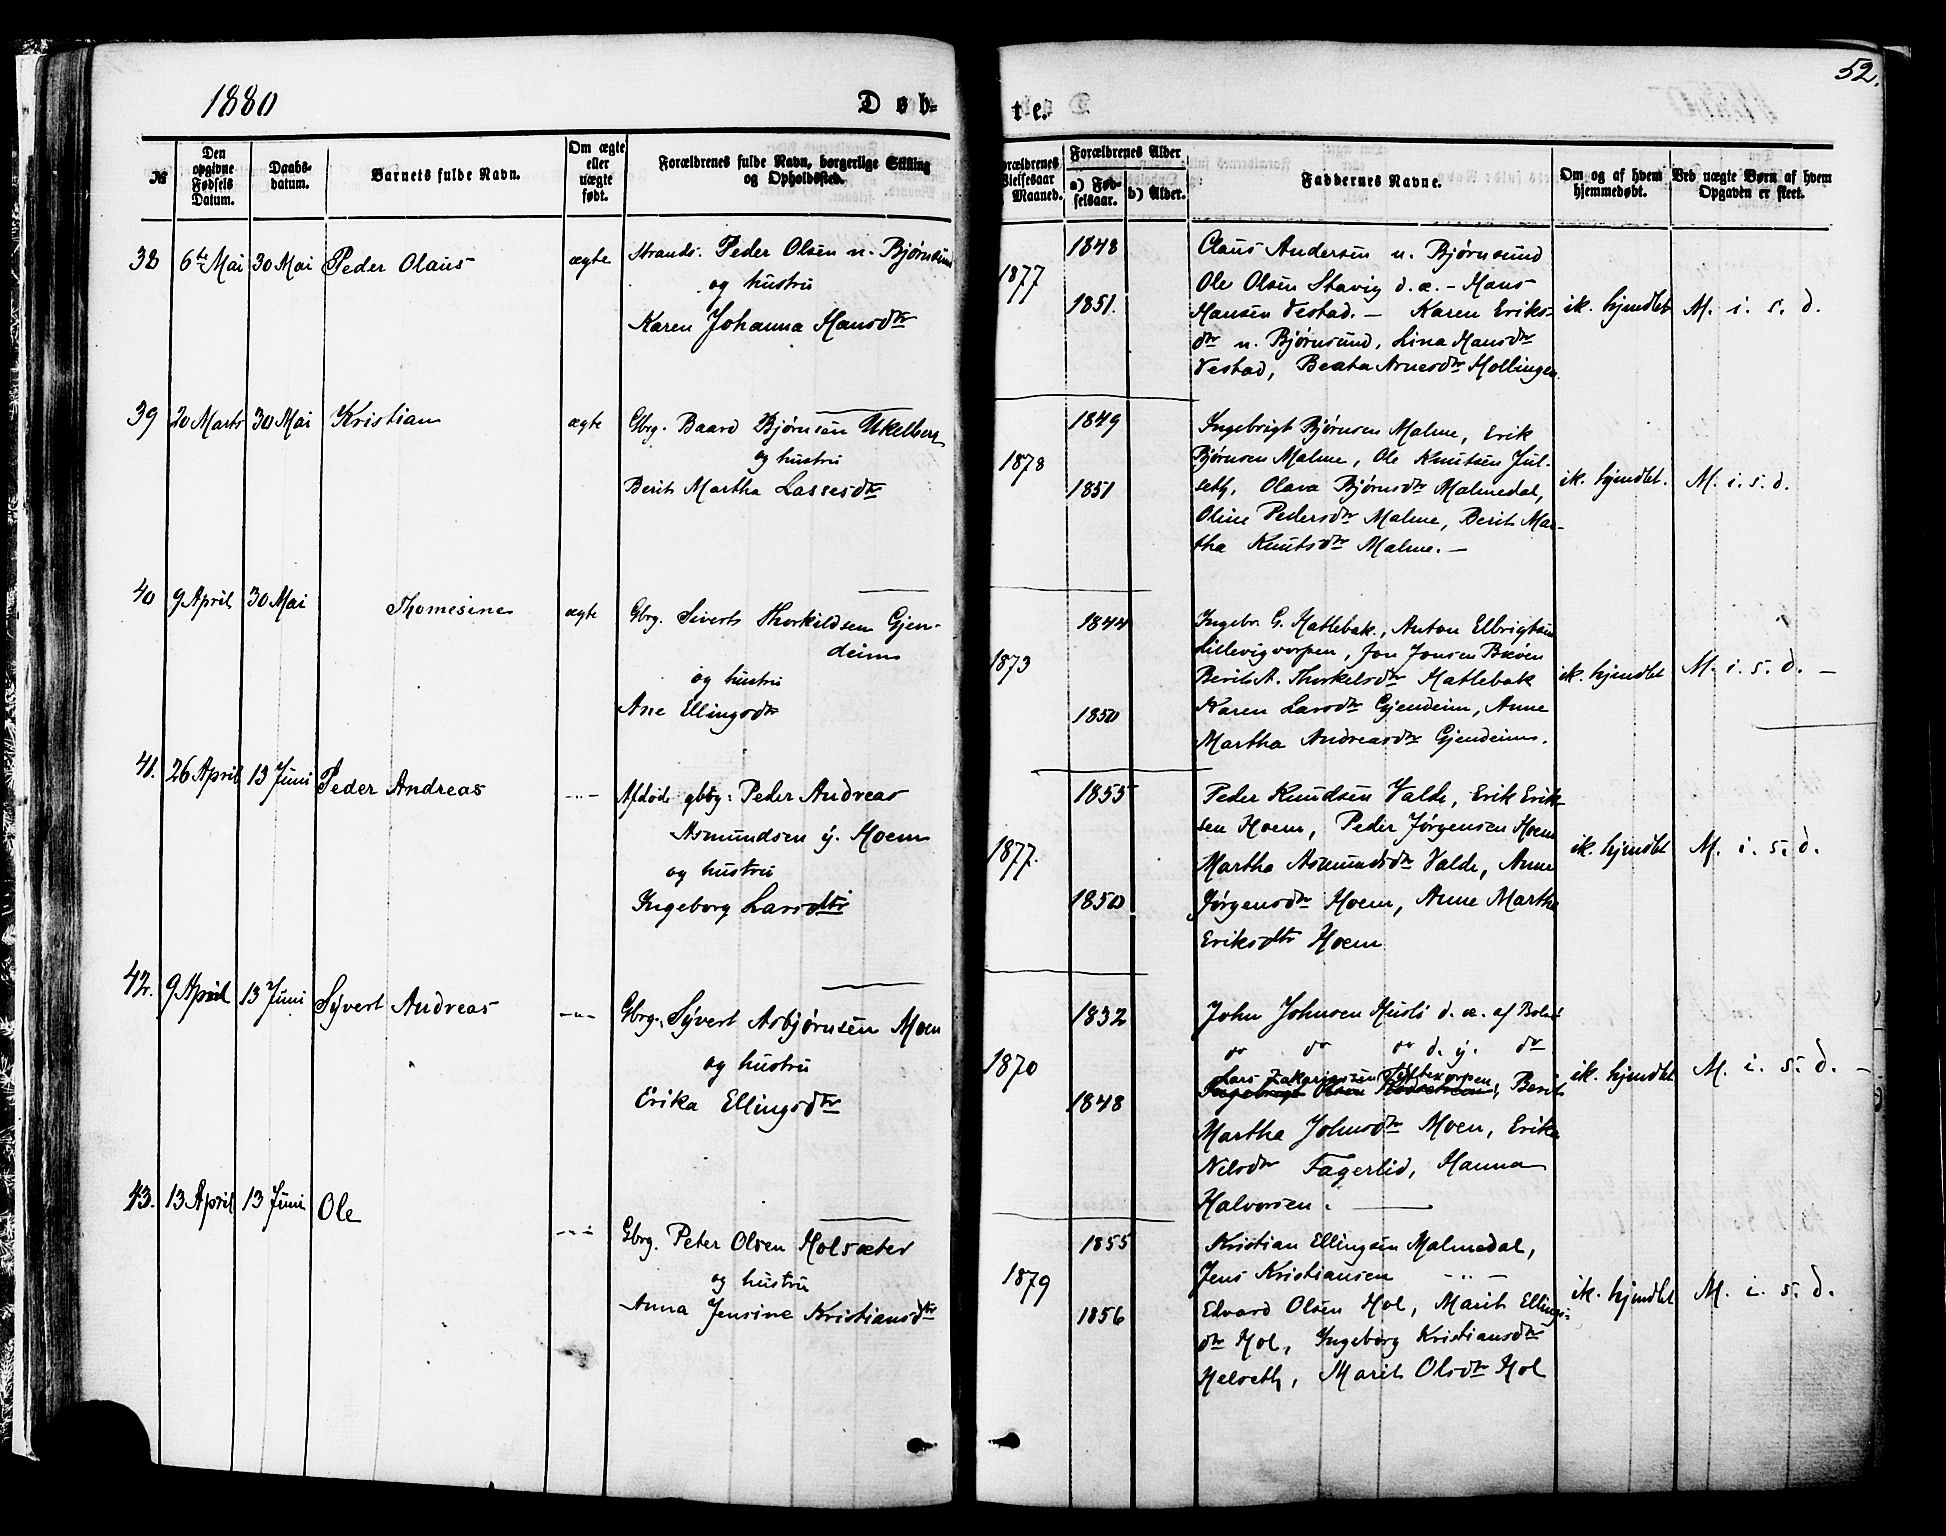 1880
Døb-
te.
52.
№
Den opgivne Fødsels Datum.
Daabs-datum.
Barnets fulde Navn.
Om ægte eller uægte født.
Forældrenes fulde Navn, borgerlige Stilling og Opholdssted.
Forældrenes Vielsesaar Maaned.
Forældrenes Alder
a) Fødselsaar.
b) Alder.
Faddernes Navne.
Om og af hvem hjemmedøbt.
Ved uægte Børn af hvem Opgaven er skeet.
38 6te Mai 30 Mai Peder Olaus ægte
Strands. Peder Olsen n. Bjørnsund
og hustru
Karen Johanna Hansdtr
1877
1848
1851.
Claus Andersen n. Bjørnsund
Ole Olsen Stavig d.æ. - Hans
Hansen Vestad. - Karen Eriks-
dtr n. Bjørnsund, Lina Hansdtr
Vestad, Beata Arnesdtr Hollingen.
ik. hjmdbt M. i. s. d.
39 20 Marts 30 Mai Kristian ægte
Gbrg. Baard Bjørnsen Ukelberg
og hustru
Berit Martha Lassesdtr
1878
1849
1851
Ingebrigt Bjørnsen Malme, Erik
Bjørnsen Malme, Ole Knutsen Jul-
seth, Olava Bjørnsdtr Malmedal,
Oline Pedersdtr Malme, Berit Mar-
tha Knutsdtr Malme. -
ik. hjmdbt. M. i. s. d.
40 9 April 30 Mai Thomesine ægte
Gbrg. Sivert Thorkildsen Gjen-
deim
og hustru
Ane Ellingsdtr
1873
1844
1850
Ingebr. G. Hatlebak, Anton Elbrigtsen
Lillevigvorpen, Jon Jonsen Bæven
Berit A. Thorkelsdtr Hatlebak
Karen Larsdtr Gjendeim, Anne
Martha Andreasdtr Gjendeim.
ik. hjmdbt M. i. s. d. -
41. 26 April 13 Juni Peder Andreas -"-
Afdøde gbrg: Peder Andreas
Asmundsen y. Hoem
og hustru
Ingeborg Larsdtr
1877.
1855
1850
Peder Knudsen Valde, Erik Erik-
sen Hoem, Peder Jørgensen Hoem
Martha Asmundsdtr Valde, Anne
Jørgensdtr Hoem, Anne Martha
Eriksdtr Hoem
ik. hjmdbt M. i. s. d.
42. 9 April 13 Juni Syvert Andreas -"-
Gbrg. Syvert Asbjørnsen Moen
og hustru
Erika Ellingsdtr
1870
1832
1848
John Johnsen Husli d.æ. af Bolsø
do do do d. y. do
Lars Zakariassen
Ingebrigt Olsen, Berit
Martha Johnsdtr Moen, Erika
Nilsdtr Fagerlid, Hanna
Halvorsen.
ik. hjmdbt M. i. s. d. -
43. 13 April 13 Juni Ole -"-
Gbrg. Peter Olsen Holsæter
og hustru
Anna Jensine Kristiansdtr
1879
1855
1856
Kristian Ellingsen Malmedal,
Jens Kristiansen -"-
Edvard Olsen Hol, Marit Ellings-
dtr Hol, Ingeborg Kristiansdtr
Helseth, Marit Olsdtr Hol
ik. hjmdbt M. i. s. d.